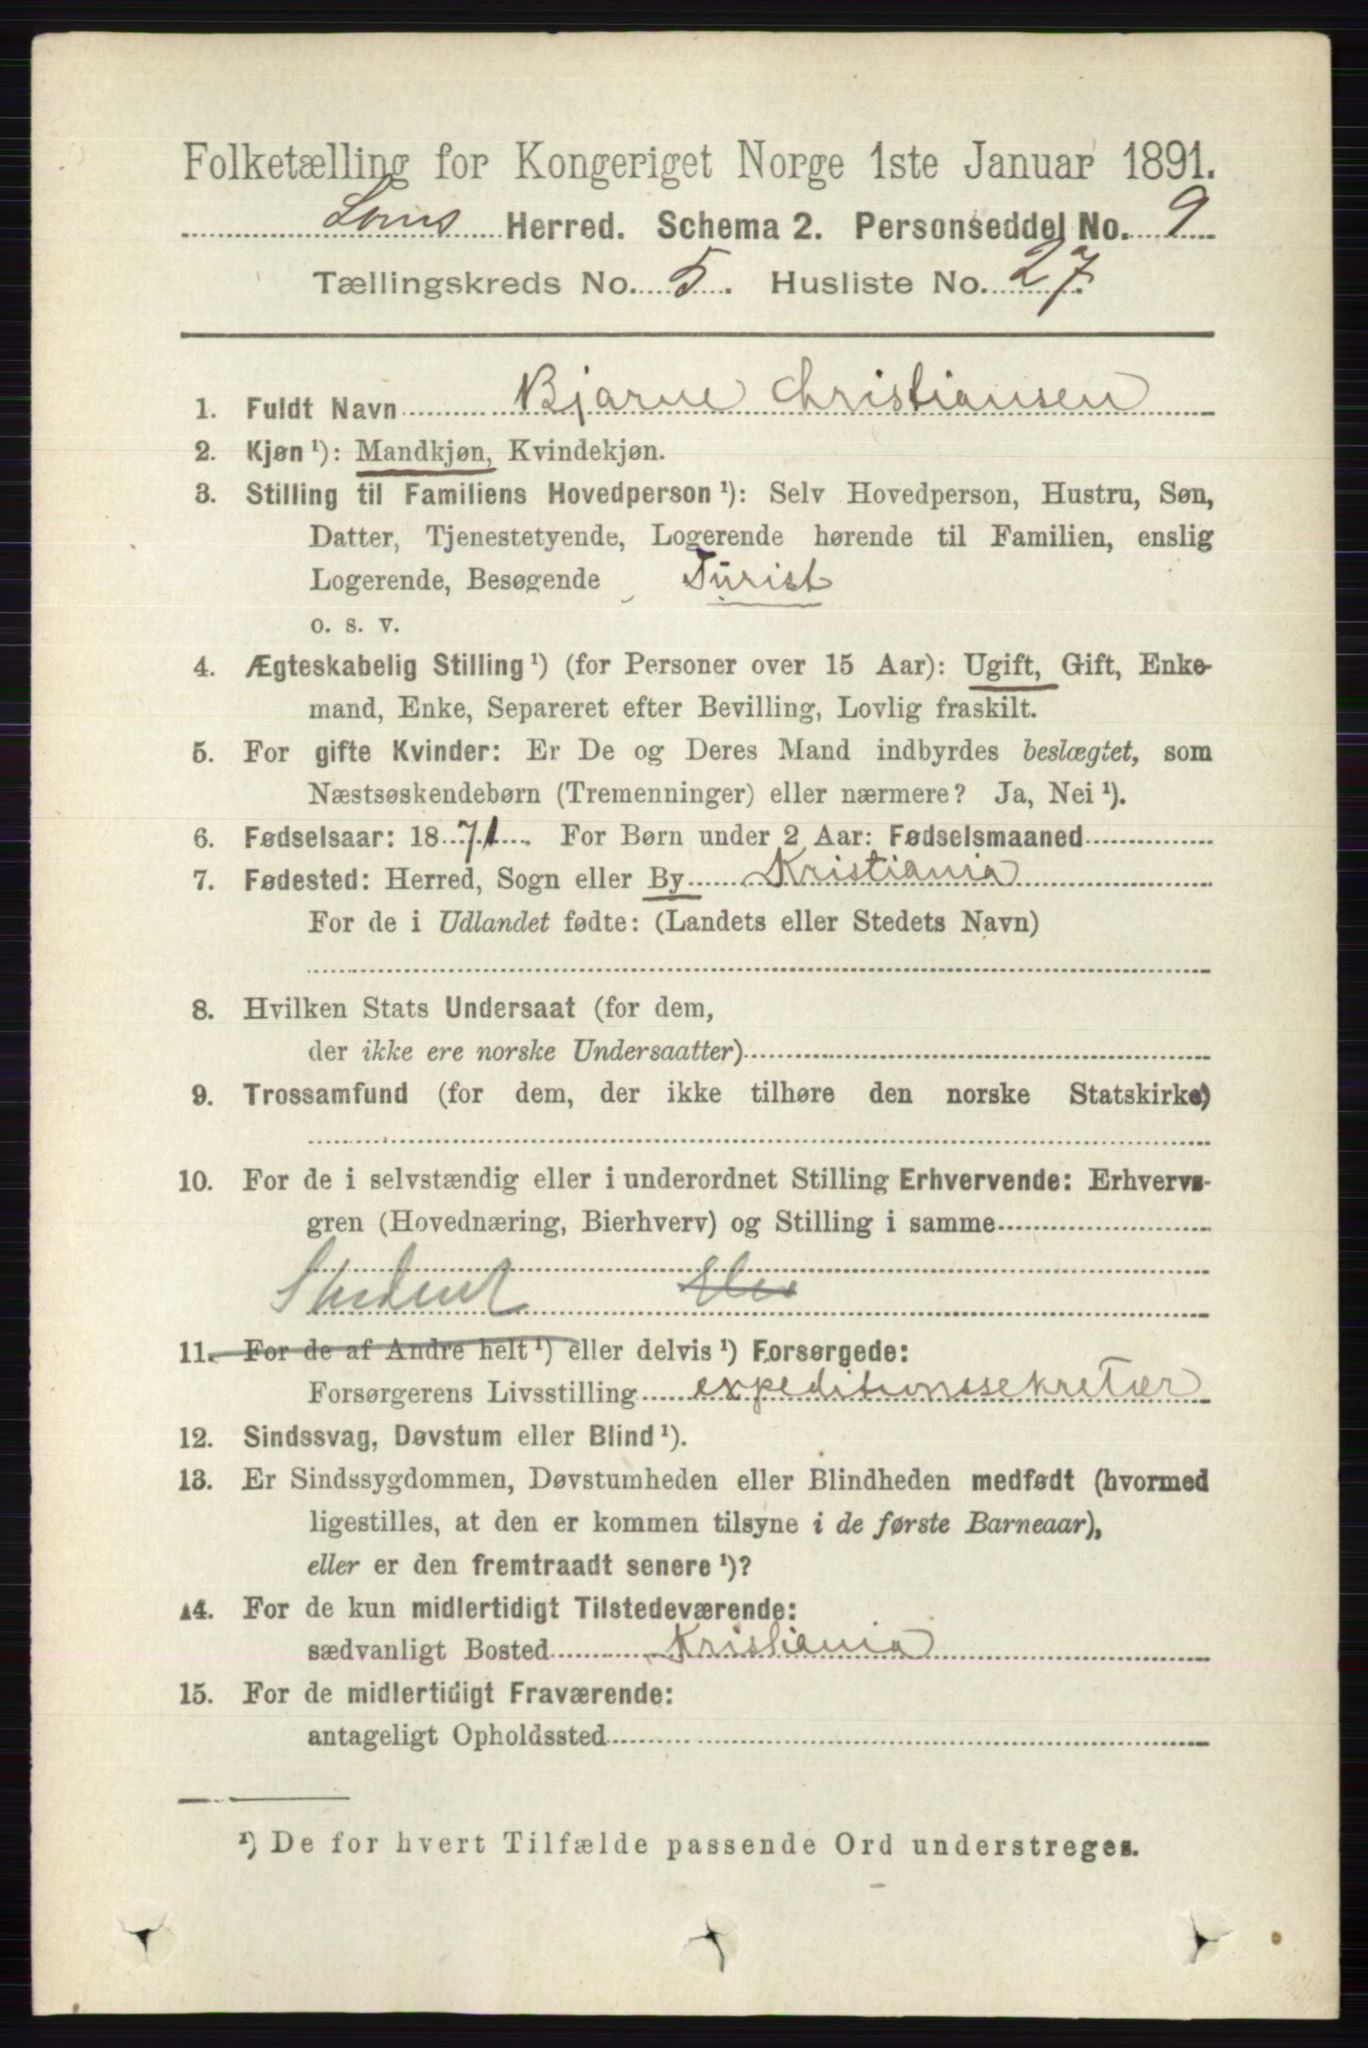 Folketælling for Kongeriget Norge 1ste Januar 1891.
Loms Herred. Schema 2. Personseddel No. 9
Tællingskreds No. 5. Husliste No. 27
1. Fuldt Navn Bjarne Christiansen
2. Kjøn ¹): Mandkjøn, Kvindekjøn.
3. Stilling til Familiens Hovedperson ¹): Selv Hovedperson, Hustru, Søn,
Datter, Tjenestetyende, Logerende hørende til Familien, enslig
Logerende, Besøgende Turist
o. s. v.
4. Ægteskabelig Stilling ¹) (for Personer over 15 Aar): Ugift, Gift, Enke-
mand, Enke, Separeret efter Bevilling, Lovlig fraskilt.
5. For gifte Kvinder: Er De og Deres Mand indbyrdes beslægtet, som
Næstsøskendebørn (Tremenninger) eller nærmere? Ja, Nei ¹).
6. Fødselsaar: 1871. For Børn under 2 Aar: Fødselsmaaned
7. Fødested: Herred, Sogn eller By Kristiania
For de i Udlandet fødte: (Landets eller Stedets Navn)
8. Hvilken Stats Undersaat (for dem,
der ikke ere norske Undersaatter)
9. Trossamfund (for dem, der ikke tilhøre den norske Statskirke)
10. For de i selvstændig eller i underordnet Stilling Erhvervende: Erhvervs-
gren (Hovednæring, Bierhverv) og Stilling i samme
Student Elev
11. For de af Andre helt ¹) eller delvis ¹) Forsørgede:
Forsørgerens Livsstilling expeditionssekretær
12. Sindssvag, Døvstum eller Blind ¹).
13. Er Sindssygdommen, Døvstumheden eller Blindheden medfødt (hvormed
ligestilles, at den er kommen tilsyne i de første Barneaar),
eller er den fremtraadt senere ¹)?
14. For de kun midlertidigt Tilstedeværende:
sædvanligt Bosted Kristiania
15. For de midlertidigt Fraværende:
antageligt Opholdssted
¹) De for hvert Tilfælde passende Ord understreges.